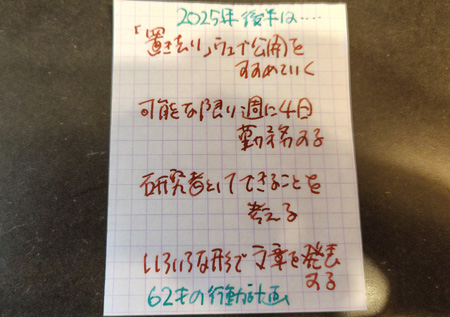 2025年後半は….
「置き去り」ウェブ公開を
すすめていく
可能な限り週に4日
勤務する
研究者としてできることを
考える
いろいろな形で文章を発表
する
62才の行動計画